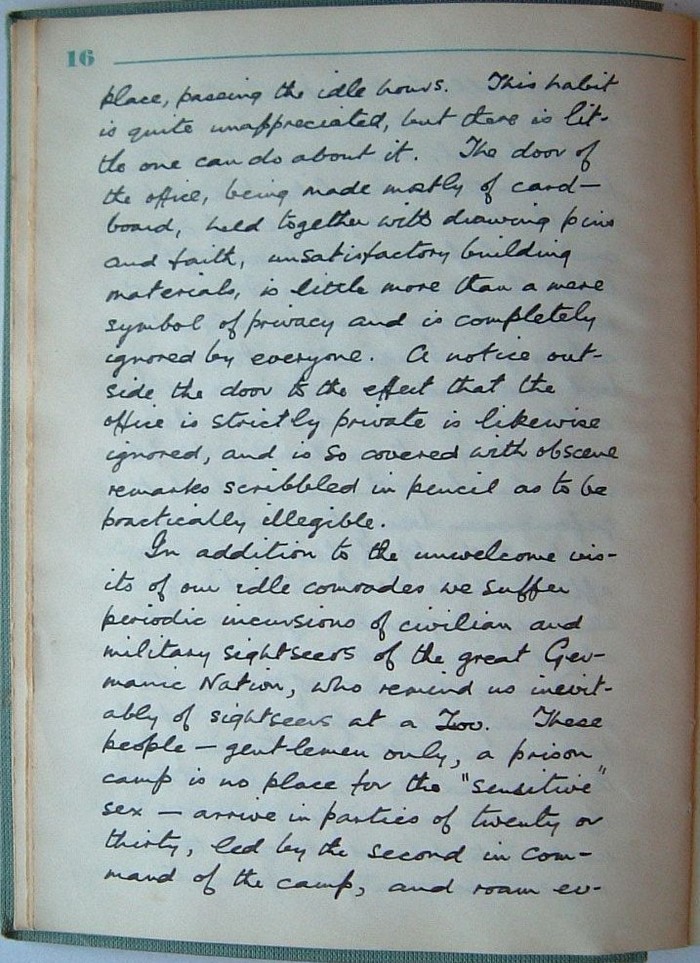 16
place, passing the idle hours. This habit
is quite unappreciated, but there is lit-
tle one can do about it. The door of
the office, being made mostly of card-
board, held together with drawing pins
and faith, unsatisfactory building
materials, is little more than a mere
symbol of privacy and is completely
ignored by everyone. A notice out-
side the door to the effect that the
office is strictly private is likewise
ignored, and is so covered with obscene
remarks scribbled in pencil as to be
practically illegible.
In addition to the unwelcome vis-
its of our idle comrades we suffer
periodic incursions of civilian and
military sightseers of the great Ger-
manic Nation, who remind us inevit-
ably of sightseers at a Zoo. These
people – gentlemen only, a prison
camp is no place for the "sensitive"
sex – arrive in parties of twenty or
thirty, led by the second in com-
mand of the camp, and roam ev-